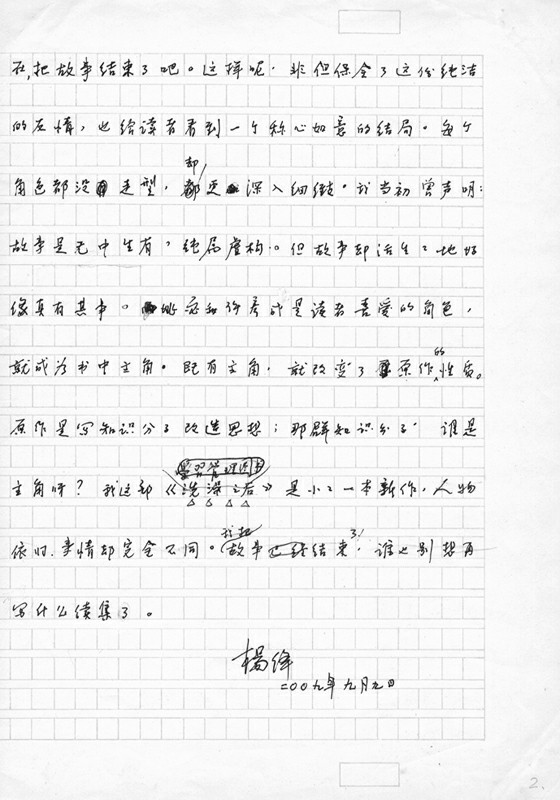 在,把故事结束了吧。这样呢,非但保全了这份纯洁
的友情,也给读者看到一个称心如意的结局。每个
角色都没走型,却更深入细致。我当初曾声明:
故事是无中生有,纯属虚构。但故事却活生生地好
像真有其事。姚宓和许彦成是读者喜爱的角色,
就成为书中主角。既有主角,就改变了原作的性质。
原作是写知识分子改造思想;那群知识分子,谁是
主角呀?我这部《洗澡之后》是小小一本新作,人物
依旧,事情却完全不同。我把故事结束了,谁也别想再
写什么续集了。
杨绛
二〇〇九年九月九日
2.